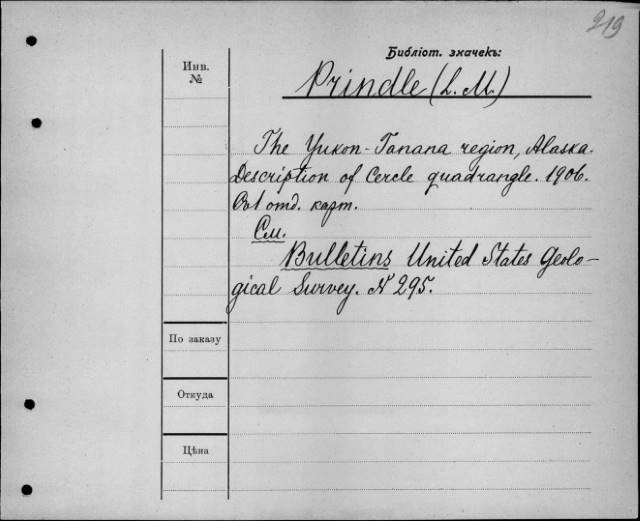 219
Библіот. значекъ:
Инв.
№
Prindle (L. M.)
The Yukon-Tanana region, Alaska.
Description of Cercle quadrangle. 1906.
Съ 1 отд. карт.
См.
Bulletins United States Geolo-
gical Survey. N 295.
По заказу
Откуда
Цѣна